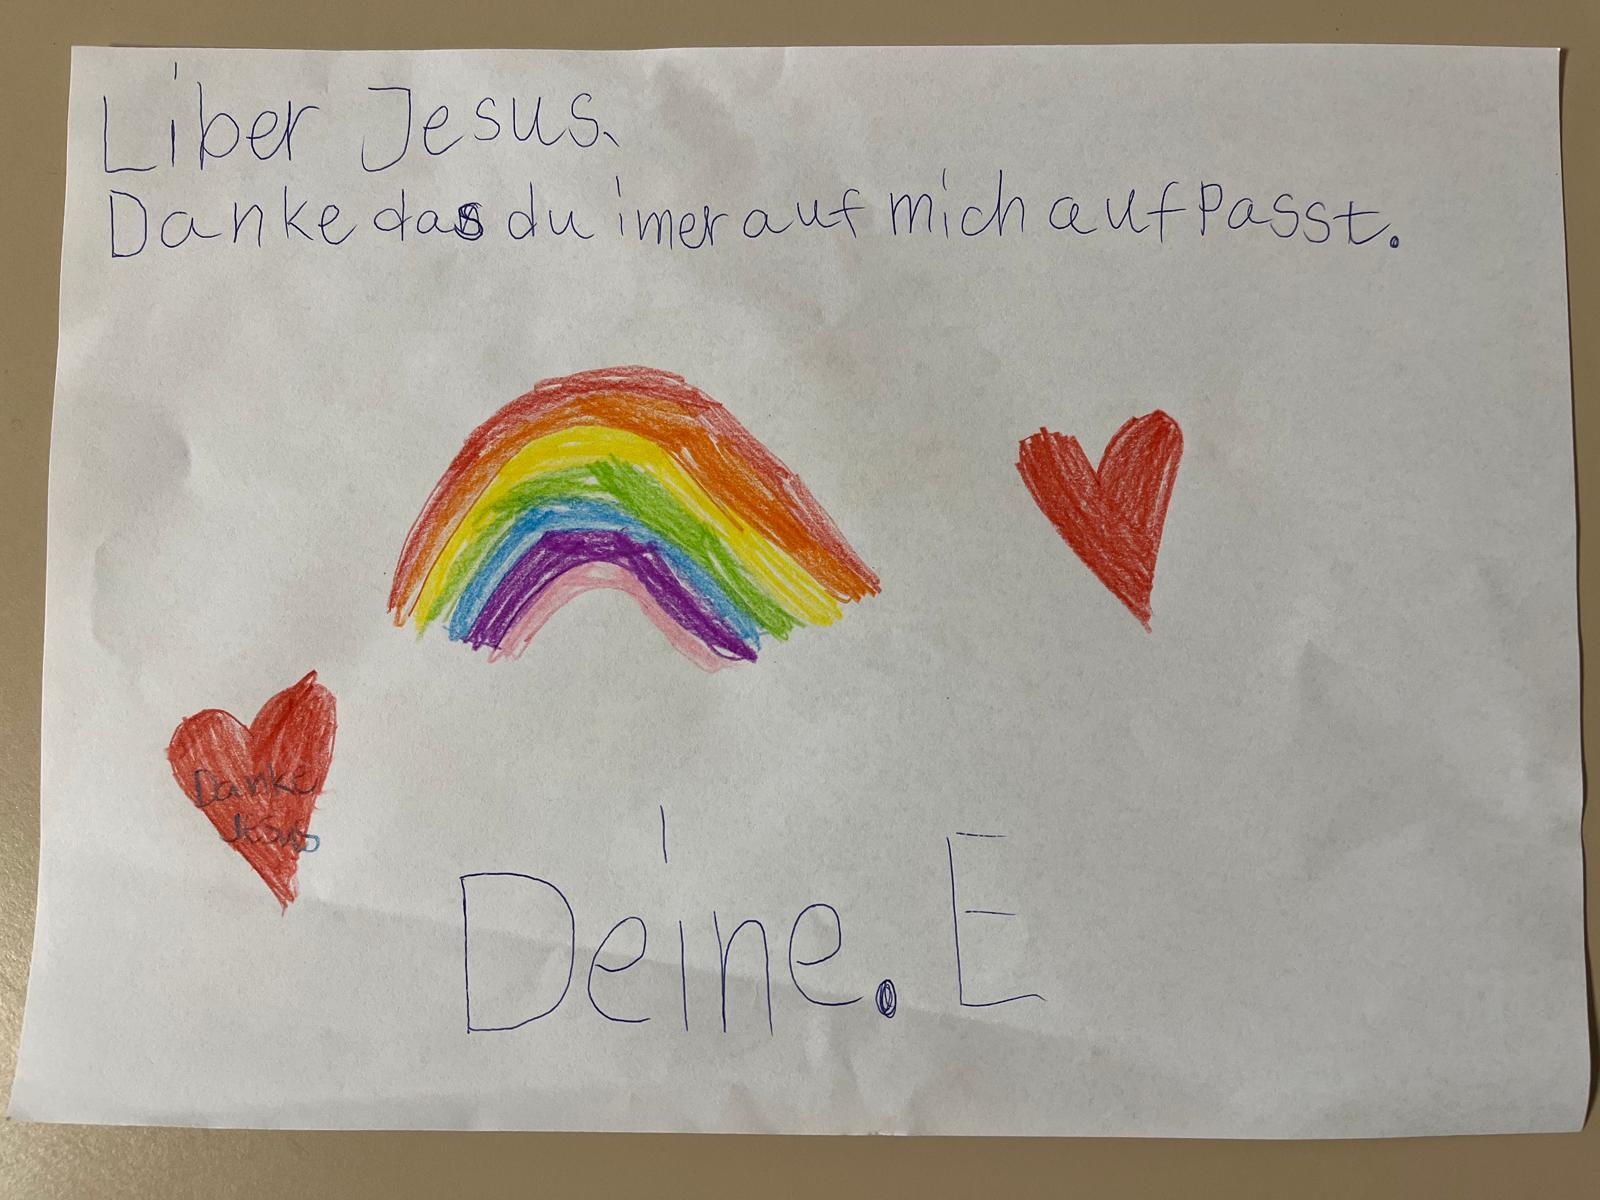 Liber Jesus.
Danke das du imer auf mich aufPasst.
Danke
Jesus
Deine. E